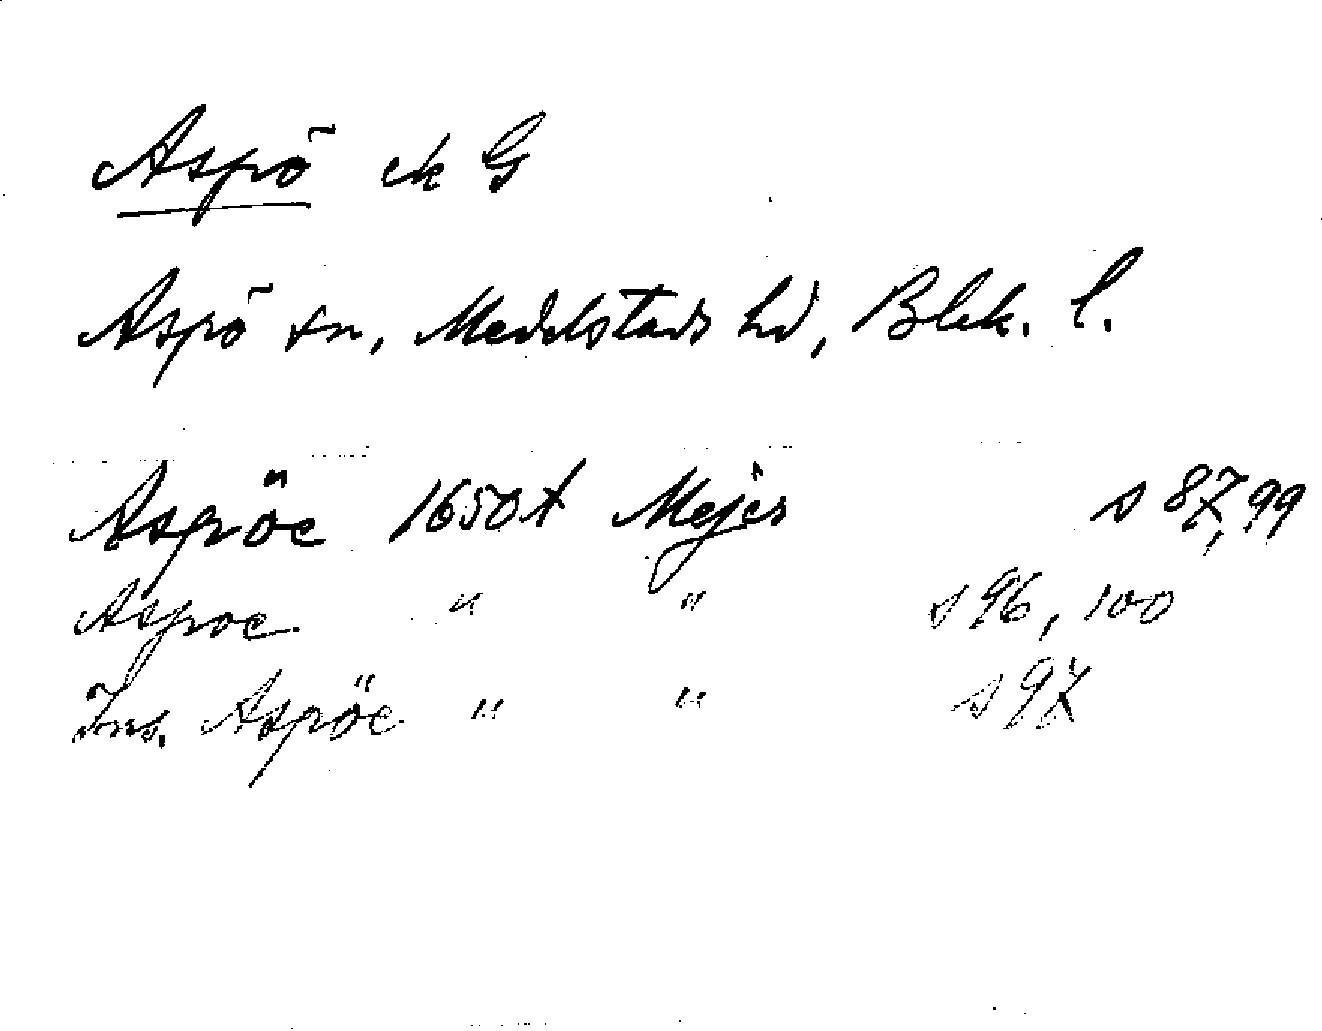 Aspö ek G
Aspö sn, Medelstads hd, Blek. l.
Aspöe 1650t Mejer s 87, 99
Aspoe " " s 96, 100
Ins. Aspöe " " s 97